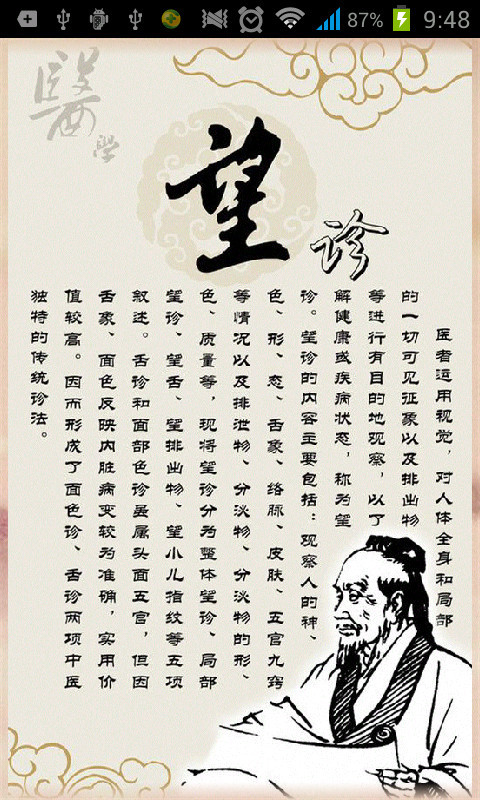 87% 9:48
醫
學
望
诊
医者运用视觉，对人体全身和局部
的一切可见征象以及排出物
等进行有目的地观察，以了
解健康或疾病状态，称为望
诊。望诊的内容主要包括：观察人的神、
色、形、态、舌象、络脉、皮肤、五官九窍
等情况以及排泄物、分泌物、分泌物的形、
色、质量等，现将望诊分为整体望诊、局部
望诊、望舌、望排出物、望小儿指纹等五项
叙述。舌诊和面部色诊虽属头面五官，但因
舌象、面色反映内脏病变较为准确，实用价
值较高。因而形成了面色诊、舌诊两项中医
独特的传统诊法。